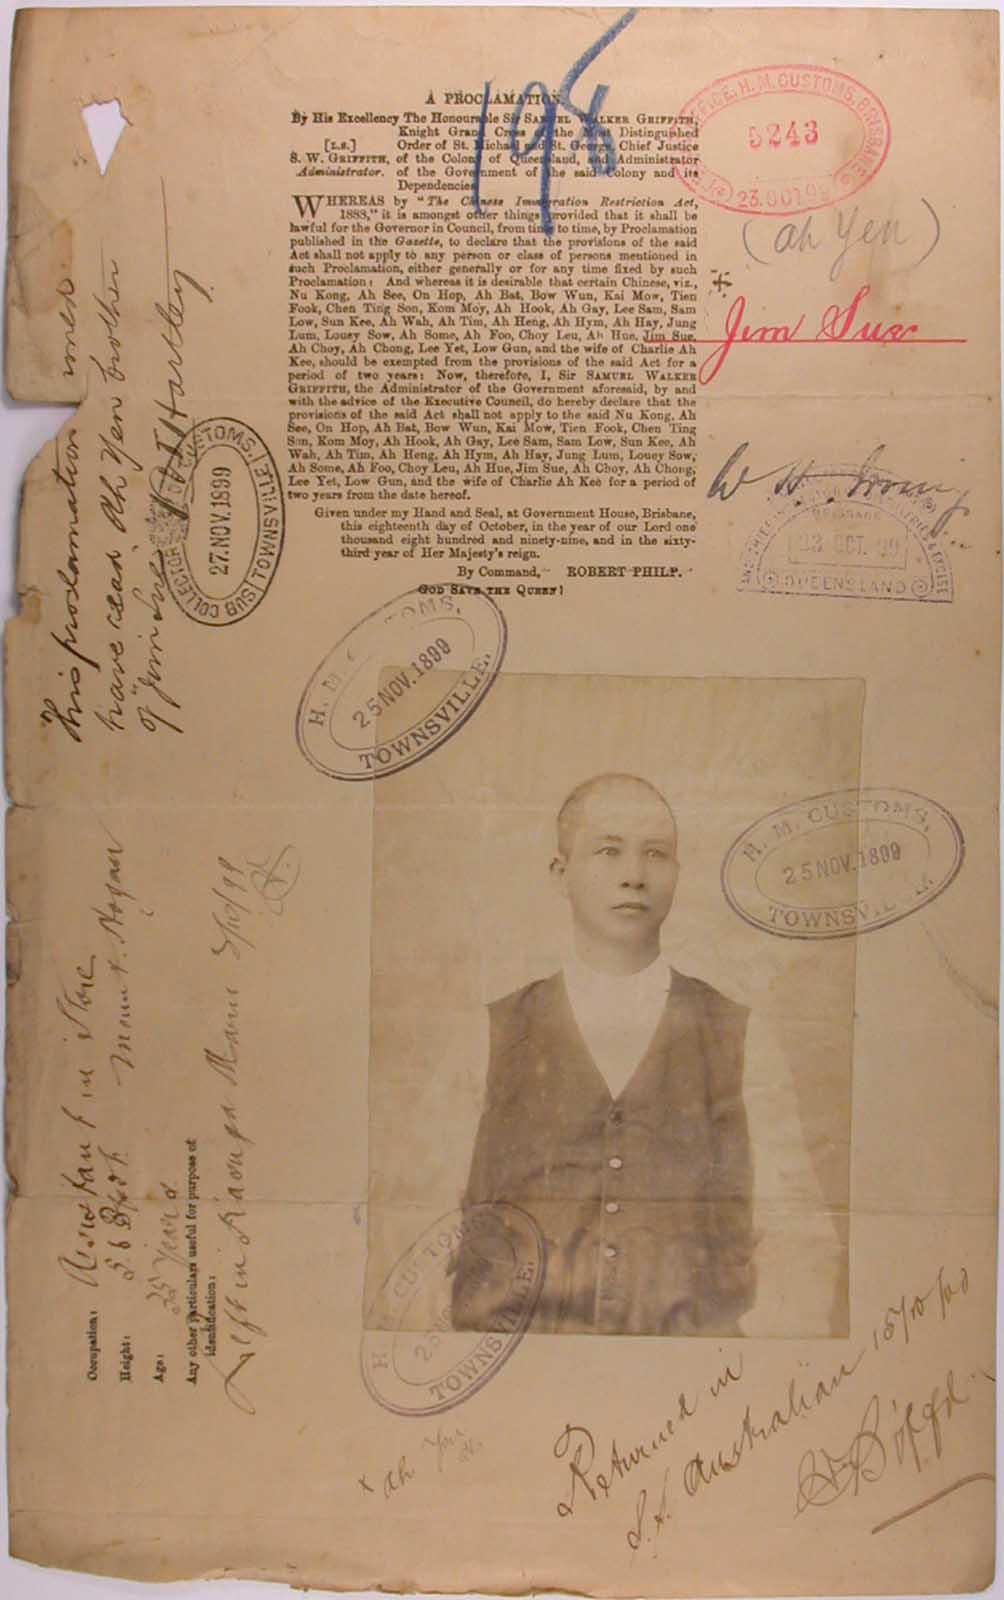 198
A PROCLAMATION.
By His Excellency The Honourable Sir SAMUEL WALKER GRIFFITH,
Knight Grand Cross of the Most Distinguished
[L.S.] Order of St. Michael and St. George, Chief Justice
S. W. GRIFFITH, of the Colony of Queensland, and Administrator
Administrator. of the Government of the said Colony and its
Dependencies.
WHEREAS by "The Chinese Immigration Restriction Act,
1888," it is amongst other things provided that it shall be
lawful for the Governor in Council, from time to time, by Proclamation
published in the Gazette, to declare that the provisions of the said
Act shall not apply to any person or class of persons mentioned in
such Proclamation, either generally or for any time fixed by such
Proclamation: And whereas it is desirable that certain Chinese, viz.,
Nu Kong, Ah See, On Hop, Ah Bat, Bow Wun, Kai Mow, Tien
Fook, Chen Ting Son, Kom Moy, Ah Hook, Ah Gay, Lee Sam, Sam
Low, Sun Kee, Ah Wah, Ah Tim, Ah Heng, Ah Hym, Ah Hay, Jung
Lum, Louey Sow, Ah Some, Ah Foo, Choy Leu, Ah Hue, Jim Sue,
Ah Choy, Ah Chong, Lee Yet, Low Gun, and the wife of Charlie Ah
Kee, should be exempted from the provisions of the said Act for a
period of two years: Now, therefore, I, Sir SAMUEL WALKER
GRIFFITH, the Administrator of the Government aforesaid, by and
with the advice of the Executive Council, do hereby declare that the
provisions of the said Act shall not apply to the said Nu Kong, Ah
See, On Hop, Ah Bat, Bow Wun, Kai Mow, Tien Fook, Chen Ting
Son, Kom Moy, Ah Hook, Ah Gay, Lee Sam, Sam Low, Sun Kee, Ah
Wah, Ah Tim, Ah Heng, Ah Hym, Ah Hay, Jung Lum, Louey Sow,
Ah Some, Ah Foo, Choy Leu, Ah Hue, Jim Sue, Ah Choy, Ah Chong,
Lee Yet, Low Gun, and the wife of Charlie Ah Kee for a period of
two years from the date hereof.
Given under my Hand and Seal, at Government House, Brisbane,
this eighteenth day of October, in the year of our Lord one
thousand eight hundred and ninety-nine, and in the sixty-
third year of Her Majesty's reign.
By Command, ROBERT PHILP.
GOD SAVE THE QUEEN!
H. M. CUSTOMS, BRISBANE
5243
23. OCT 99
(Ah Yen)
Jim Sue
W H Irving
BRISBANE
23 OCT. 99
QUEENSLAND
This proclamation
have read Ah Yen brother
of "Jim Sue" Hartley
CUSTOMS,
27.NOV.1899
SUB COLLECTOR
TOWNSVILLE
H. M. CUSTOMS,
25 NOV. 1899
TOWNSVILLE.
H. M. CUSTOMS,
25 NOV. 1899
TOWNSVILLE.
H. M. CUSTOMS
TOWNSVILLE.
Occupation: Assistant in Store
Mount Hogan
Height: 5.6
Age: 35 Years
Any other particulars useful for purpose of
identification:
Left in
x Ah Yen
Returned in
S.S. Australian